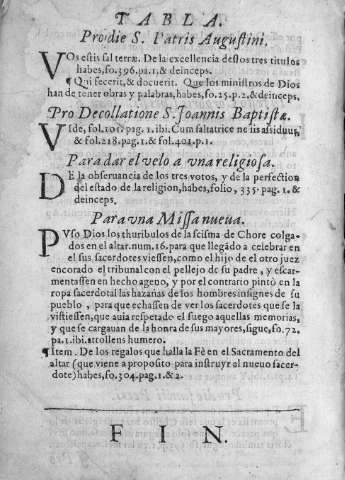 TABLA.
Prodie S. Patris Augustini.
VOs estis sal terræ. De la excellencia destos tres titulos
habes, fo. 396. pa. 1, & deinceps.
¶ Qui fecerit, & docuerit. Que los ministros de Dios
han de tener obras y palabras, habes, fo. 25. p. 2. & deinceps.
Pro Decollatione S. Joannis Baptistæ.
VIde, fol. 101. pag. 1. ibi. Cum saltatrice ne sis assiduus,
& fol. 218. pag. 1. & fol. 401. p. 1.
Para dar el velo a vna religiosa.
DE la obseruancia de los tres votos, y de la perfection
del estado de la religion, habes, folio, 335. pag. 1. &
deinceps.
Para vna Missa nueua.
PVso Dios los thuribulos de la scisma de Chore colga-
dos en el altar. num. 16. para que llegãdo a celebrar en
el sus sacerdotes viessen, como el hijo de el otro juez
encorado el tribunal con el pellejo de su padre, y escar-
mentassen en hecho ageno, y por el contrario pintò en la
ropa sacerdotal las hazañas de los hombres insignes de su
pueblo, para que echassen de ver los sacerdotes que se la
vistiessen, que auia respetado el fuego aquellas memorias,
y que se cargauan de la honra de sus mayores, sigue, fo. 72.
pa. 1. ibi. attollens humero.
¶ Item. De los regalos que halla la Fè en el Sacramento del
altar (que viene a proposito para instruyr al nueuo sacer-
dote) habes, fo. 304. pag. 1. & 2.
FIN.